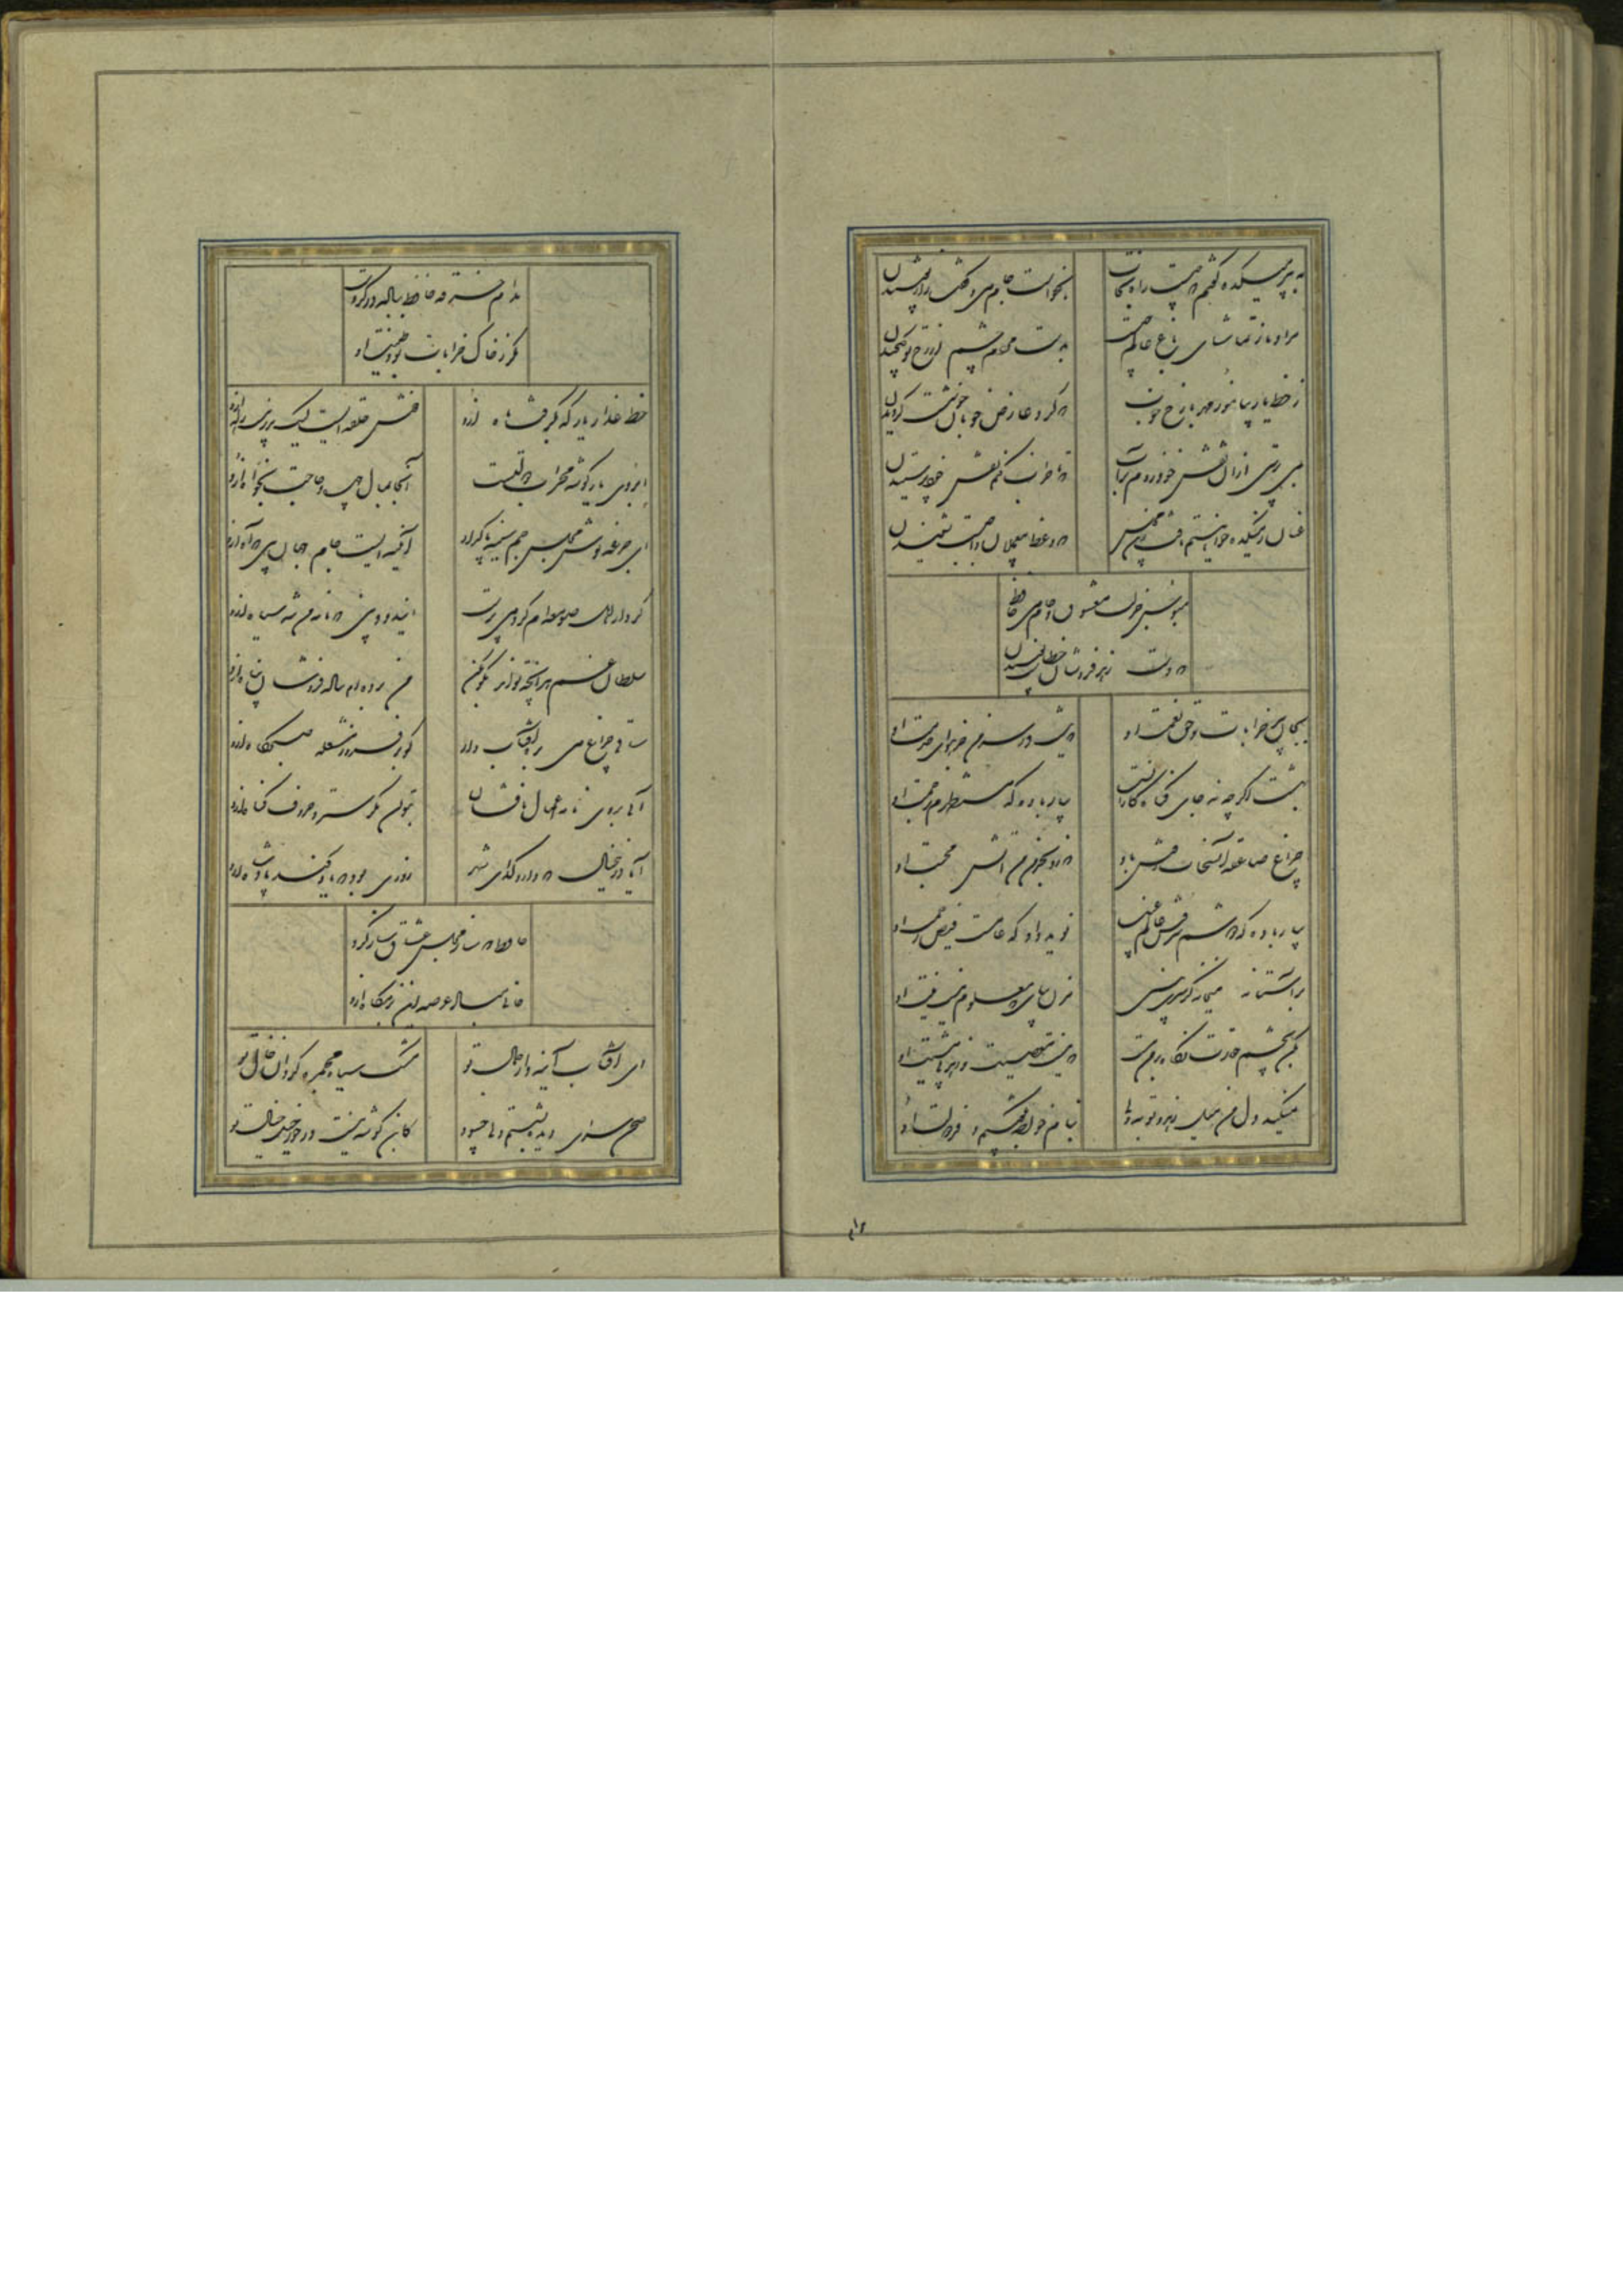 به پیر میکده گفتم که چیست راه نجات
بخواست جام می و گفت راز پوشیدن
مراد ما ز تماشای باغ عالم چیست
بدست مردم چشم از رخ تو گل چیدن
ز خط یار بیاموز مهر با رخ خوب
که گرد عارض خوبان خوشست گردیدن
بمی پرستی از آن نقش خود زدم بر آب
که تا خراب کنم نقش خود پرستیدن
عنان بمیکده خواهیم تافت زین مجلس
که وعظ بی عملان واجبست نشنیدن
مبوس جز لب معشوق و جام می حافظ
که دست زهد فروشان خطاست بوسیدن
بجان پیر خرابات و حق نعمت او
که نیست در سر من جز هوای خدمت او
بهشت اگرچه نه جای گناه کارانست
بیار باده که مستظهرم برحمت او
چراغ صاعقه آن سحاب روشن باد
که زد بخرمن من آتش محبت او
بیار باده که دوشم سروش عالم غیب
نوید داد که عامست فیض رحمت او
بر آستانه میخانه گر سری بینی
مزن بپای که معلوم نیست نیت او
مکن بچشم حقارت نگاه در من مست
که نیست معصیت و زهد بی مشیت او
نمیکند دل من میل زهد و توبه ولی
بنام خواجه بکوشیم و فر دولت او
مدام خرقه حافظ بباده در گروست
مگر ز خاک خرابات بود طینت او
خط عذار یار که بگرفت ماه ازو
خوش حلقه ایست لیک بدر نیست راه ازو
ابروی یار گوشه محراب دولتست
آنجا بمال چهره و حاجت بخواه ازو
ای جرعه نوش مجلس جم سینه پاک دار
کآیینه ایست جام جهان بین که آه ازو
کردار اهل صومعه ام کرد می پرست
این دود بین که نامه من شد سیاه ازو
سلطان غم هر آنچه تواند بگو بکن
من برده ام بباده فروشان پناه ازو
ساقی چراغ می بره آفتاب دار
گو بر فروز مشعله صبحگاه ازو
آبی بروی نامه اعمال ما فشان
بتوان مگر سترد حروف گناه ازو
آیا درین خیال که دارد گدای شهر
روزی بود که یاد کند پادشاه ازو
حافظ که ساز مجلس عشاق ساز کرد
خالی مباد عرصه این بزمگاه ازو
ای آفتاب آینه دار جمال تو
مشک سیاه مجمره گردان خال تو
صحن سرای دیده بشستم ولی چه سود
کاین گوشه نیست در خور خیل خیال تو